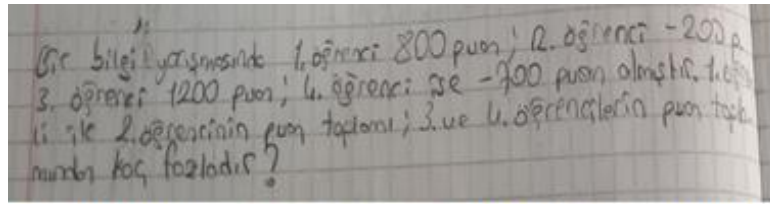 Bir bilgi yarışmasında 1. öğrenci 800 puan; 2. öğrenci -200 p.
3. öğrenci 1200 puan; 4. öğrenci ise -700 puan almıştır. 1. öğren
ci ile 2. öğrencinin puan toplamı; 3. ve 4. öğrencilerin puan topla
mından kaç fazladır?